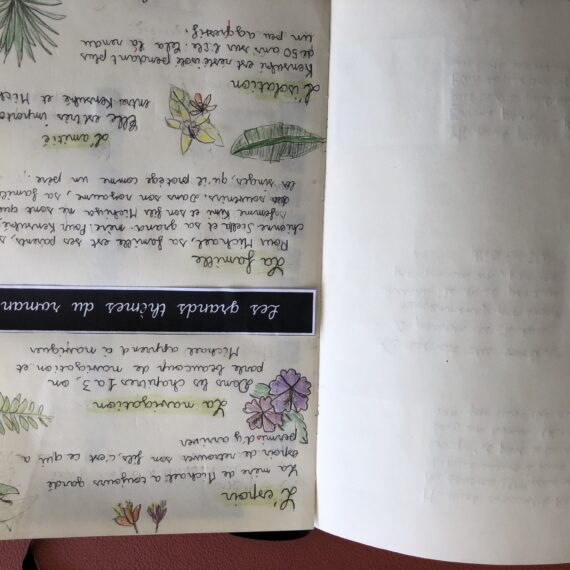 L'espoir
La mère de Michael a toujours gardé
espoir de retrouver son fils, c'est ce qui a
permis d'y arriver
La navigation
Dans les chapitres 1 à 3, on
parle beaucoup de navigation et
Michael apprend à naviguer
Les grands thèmes du roman
La famille
Pour Michael, sa famille est ses parents, s
chienne Stella et sa grand-mère. Pour Kensuké,
sa femme Kimi et son fils Michiya ne sont que
des souvenirs. Dans son royaume, sa famille
les singes, qu'il protège comme un père.
L'amitié
Elle est très importa
entre Kensuké et Mich
L'isolation
Kensuké est resté isolé pendant plus
de 50 ans sur l'île. Cela l'a rendu
un peu agressif.